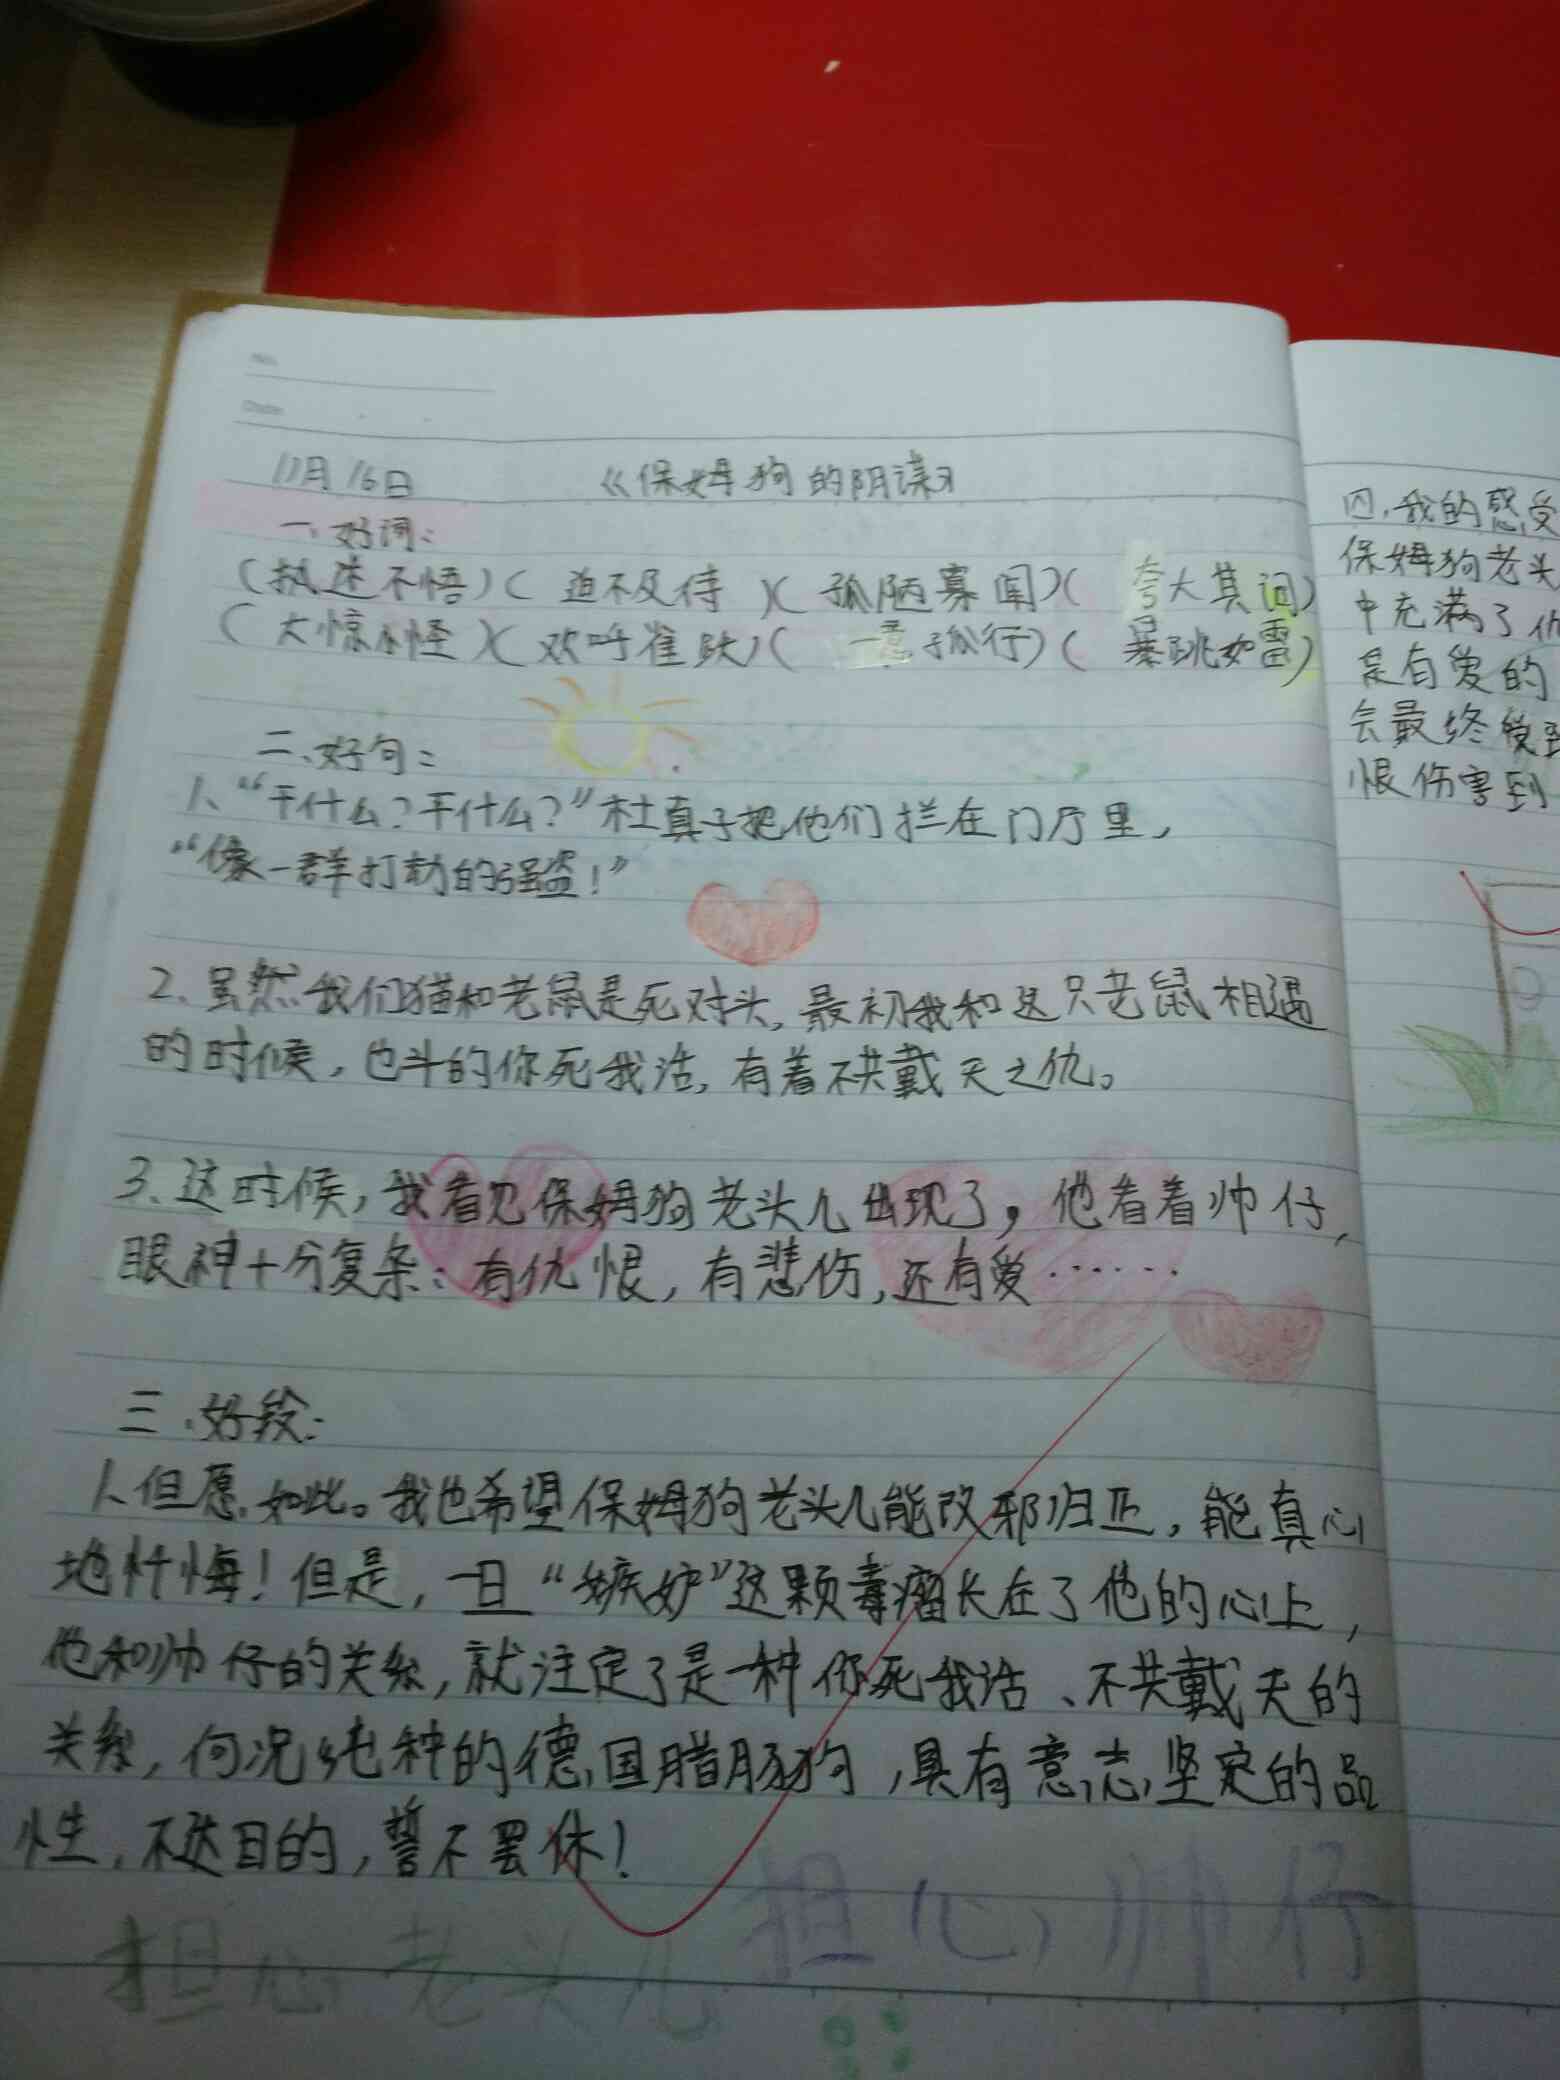 No.
Date
11月16日 《保姆狗的阴谋》
一、好词:
(执迷不悟)( 迫不及待 )( 孤陋寡闻)( 夸大其词)
( 大惊小怪 )( 欢呼雀跃)( 一意孤行)( 暴跳如雷)
二、好句:
1、“干什么?干什么?”杜真子把他们拦在门厅里,
“像一群打劫的强盗!”
2、虽然我们猫和老鼠是死对头,最初我和这只老鼠相遇
的时候,也斗的你死我活,有着不共戴天之仇。
3、这时候,我看见保姆狗老头儿出现了,他看着帅仔,
眼神十分复杂:有仇恨,有悲伤,还有爱······
三、好段:
1、但愿如此。我也希望保姆狗老头儿能改邪归正,能真心
地忏悔!但是,一旦“嫉妒”这颗毒瘤长在了他的心上,
他和帅仔的关系,就注定了是一种你死我活、不共戴天的
关系,何况纯种的德国腊肠狗,具有意志坚定的品
性,不达目的,誓不罢休!
担心老头儿 担心帅仔
四、我的感受
保姆狗老头
中充满了仇
是有爱的
会最终受到
恨伤害到